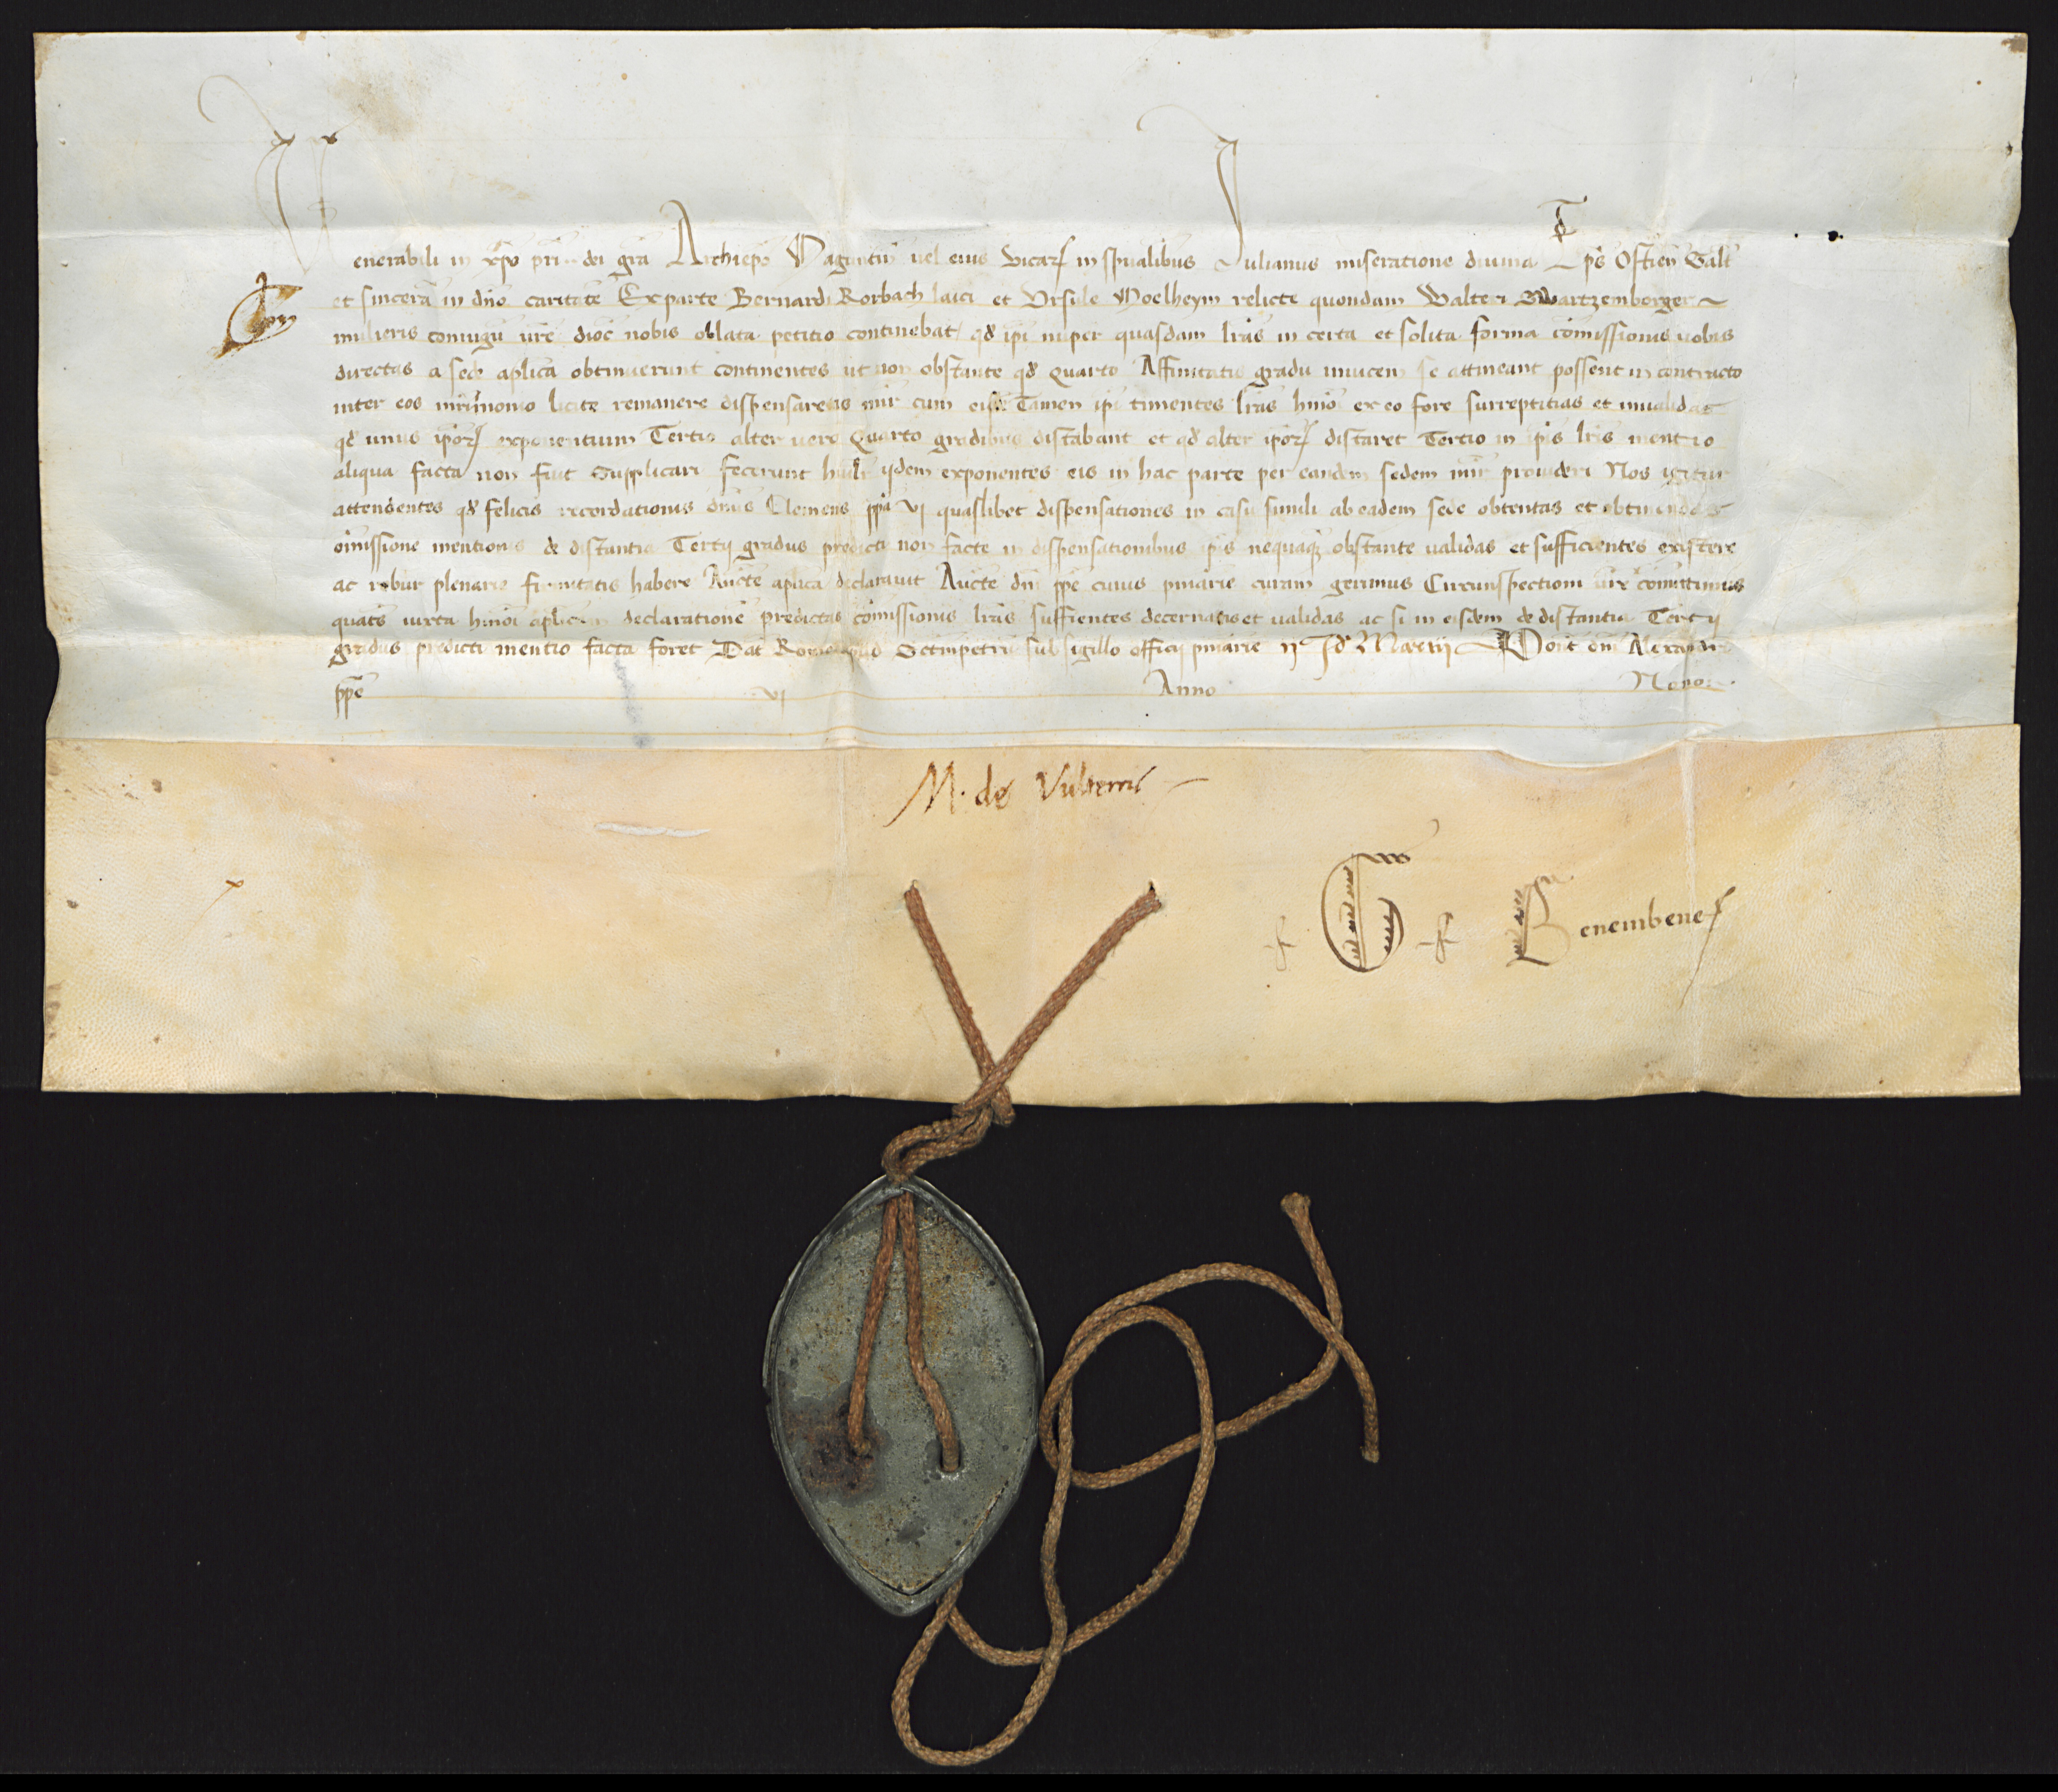 Venerabili in xp̄o pri dei gr̄a Archiepō Maguntiñ uel eius vicar in spūalibus Julianus miseratione diuina Ep̄s Ostieñ Salt̄
et sincerā in dn̄o caritatē Ex parte Bernardi Rorbach laici et Vrsule Moelheym relicte quondam Walteri Swartzemberger
mulieris coniugū vr̄e dioc̄ nobis oblata petitio continebat qđ ip̄i nuper quasdam lr̄as in certa et solita forma cōmissionis uobis
directas a sede ap̄lica obtinuerunt continentes ut non obstante qđ Quarto Affinitatis gradu inuicem se attineant possent in contracto
inter eos mr̄imonio licite remanere dispensaretis mīr cum eisđ Tamen ip̄i timentes lr̄as hmōi ex eo fore surreptitias et inualidas
qđ unus ip̄oꝝ exponentium Tertio alter uero Quarto gradibus distabant et qđ alter ip̄oꝝ distaret Tertio in ip̄is lr̄is mentio
aliqua facta non fuit Supplicari fecerunt humilr̄ ijdem exponentes eis in hac parte per eandem sedem mīr prouideri Nos igitur
attendentes qđ felicis recordationis dn̄s Clemens pp̄a vj quaslibet dispensationes in casu simili ab eadem sede obtentas et obtinendas
omissione mentionis de distantia Tertij gradus predicti non facte in dispensationibus ip̄is nequaq̄ obstante ualidas et sufficientes existere
ac robur plenarie firmitatis habere Auc̄te ap̄lica declarauit Auc̄te dn̄i pp̄e cuius pn̄iarie curam gerimus Circunspectioni vr̄e cōmittimus
quatēs iuxta hmōi ap̄licam declarationē predictas cōmissionis lr̄as suffientes decernatis et ualidas ac si in eisdem de distantia Tertij
gradus predicti mentio facta foret Dat̄ Rome apud Sctm̄petrū sub sigillo officij pn̄iarie ij Id̄ Marcij Pont̄ dn̄i Alexandri
pp̄e vj Anno Nono
M. de Vulterris
G Benembene